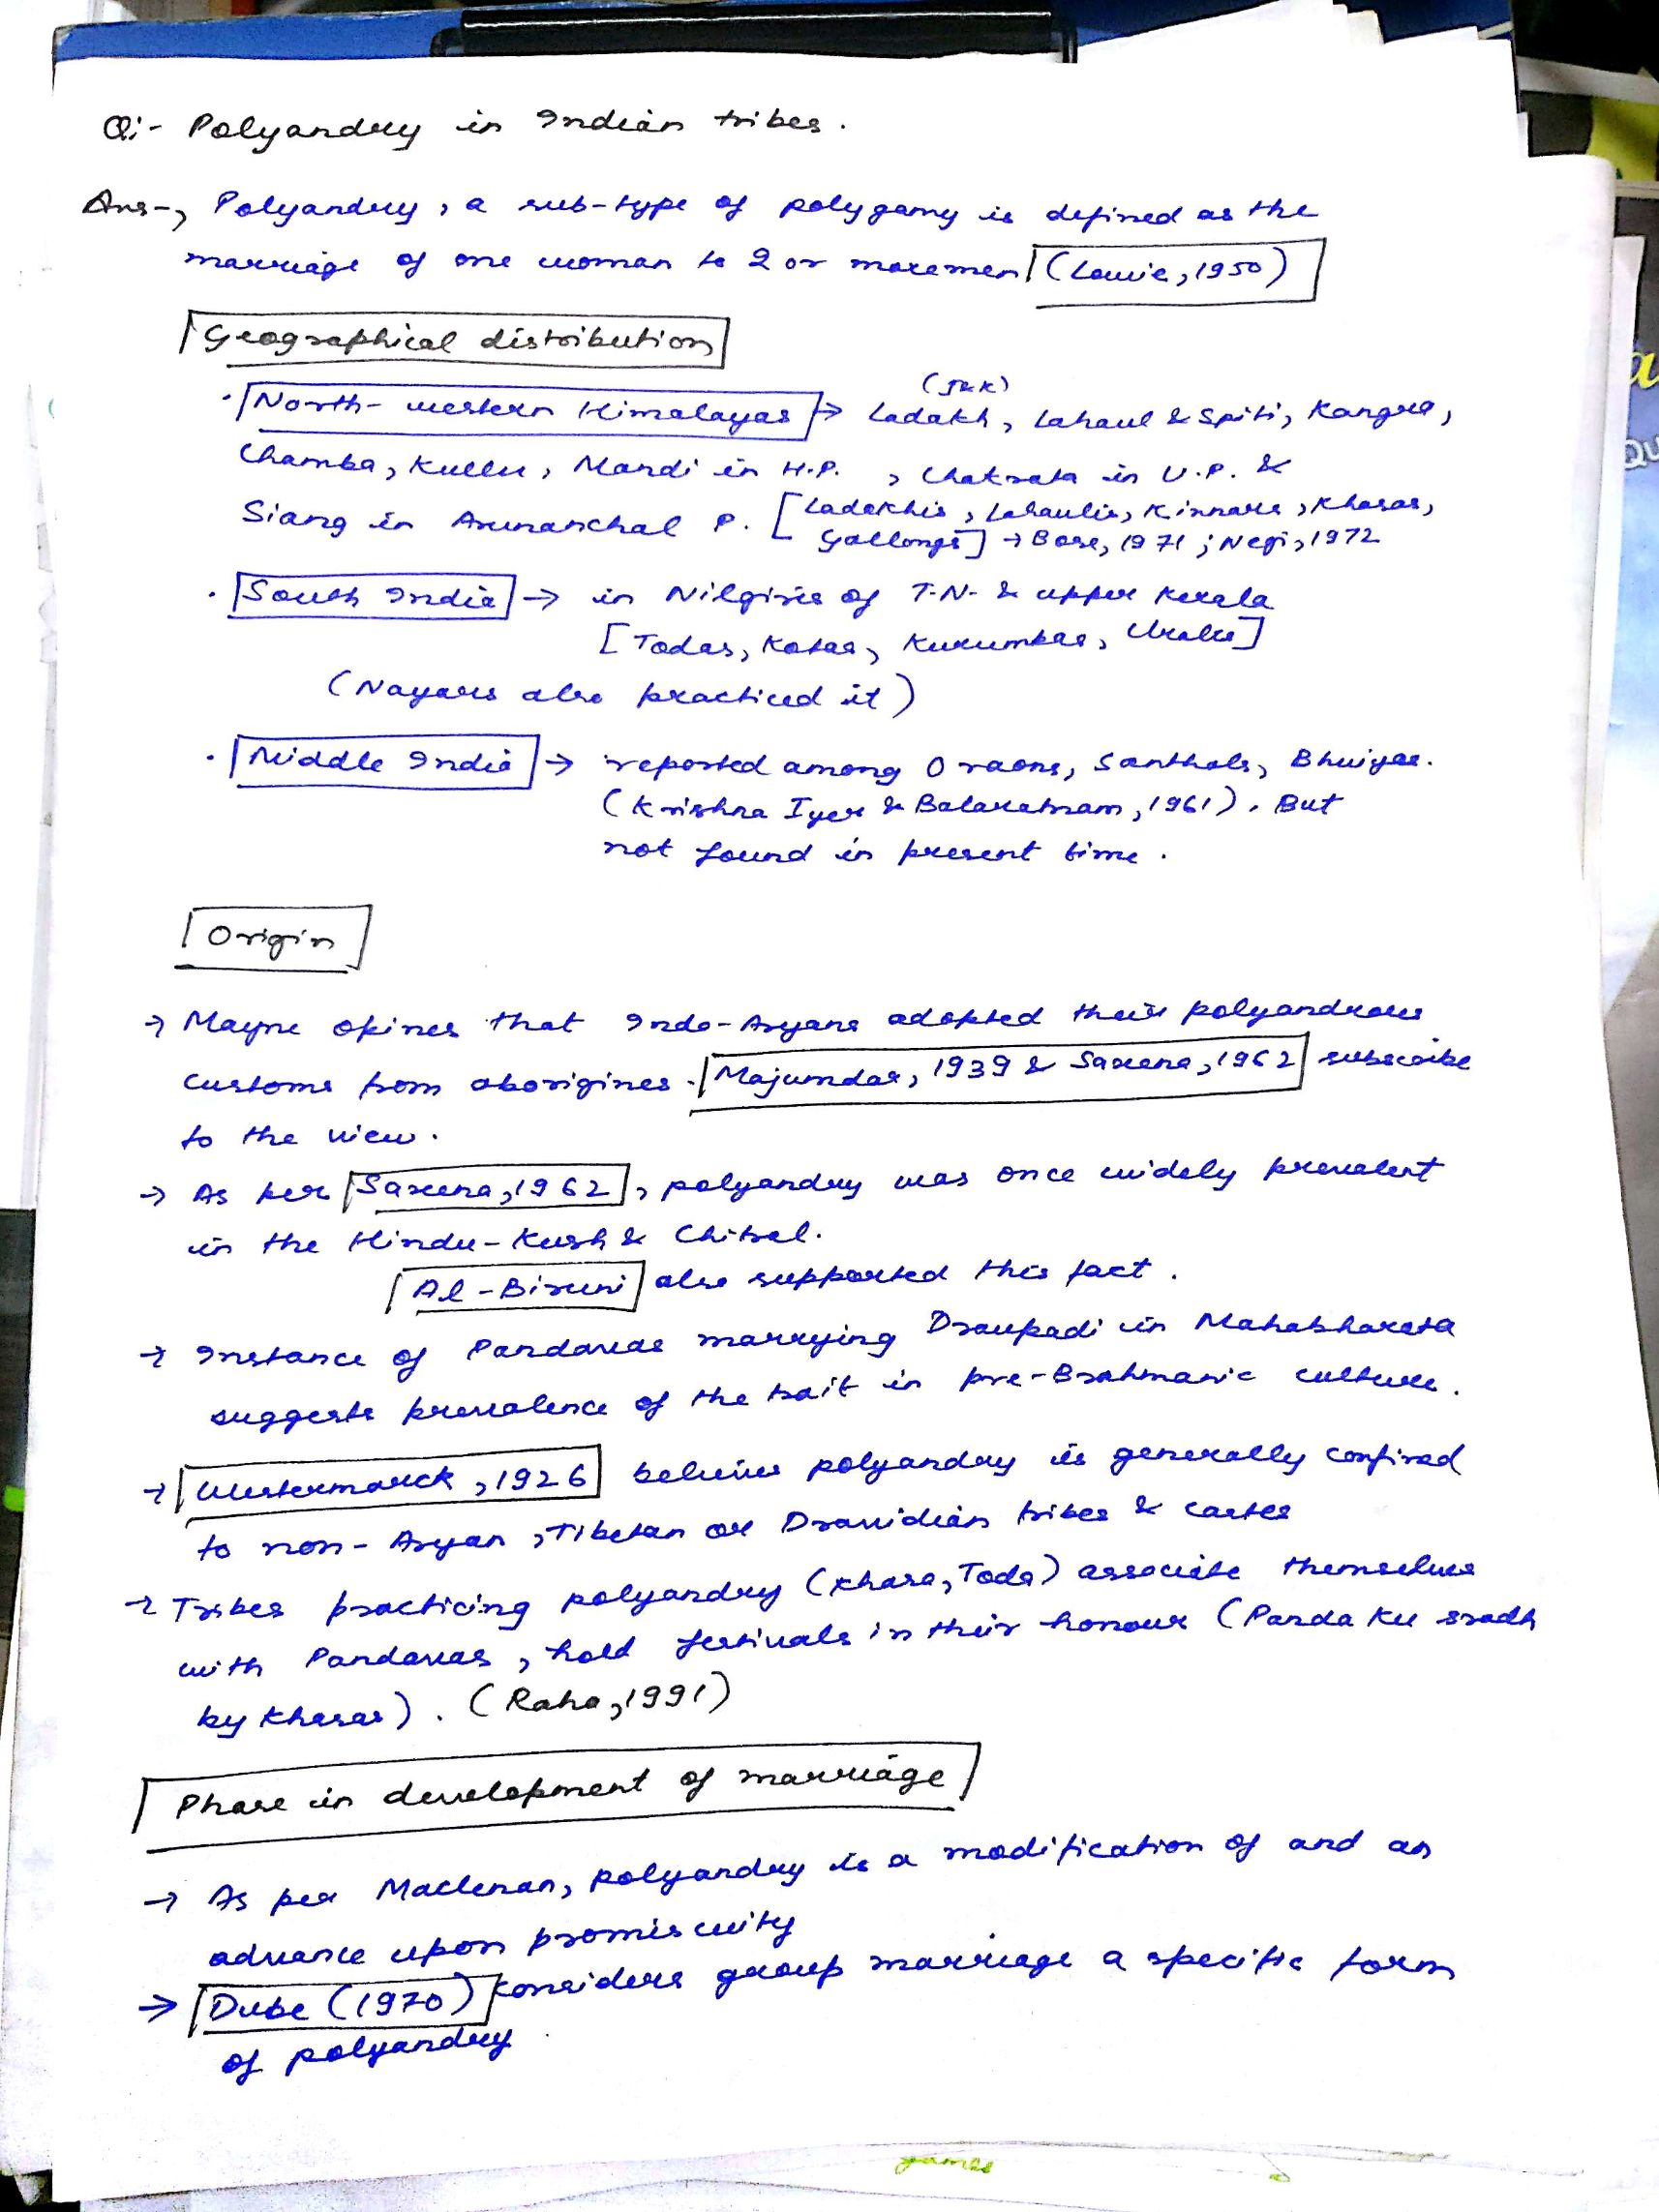 Q:- Polyandry in Indian tribes.
Ans-, Polyandry, a sub-type of polygamy is defined as the
marriage of one woman to 2 or more men (Lowie, 1950)
Geographical distribution
(J&K)
· North-western Himalayas → Ladakh, Lahaul & Spiti, Kangra,
Chamba, Kullu, Mandi in H.P. , Chakrata in U.P. &
Siang in Arunanchal P. [Ladakhis, Lahaulis, Kinnaurs, Khasas,
Gallongs] → Bose, 1971 ; Negi, 1972
· South India → in Nilgiris of T.N. & upper Kerala
[Todas, Kotas, Kurumbas, Uralis]
(Nayars also practiced it)
· Middle India → reported among Oraons, Santhals, Bhuiyas.
(Krishna Iyer & Balaratnam, 1961). But
not found in present time.
Origin
→ Mayne opines that Indo-Aryans adopted their polyandrous
customs from aborigines. Majumdar, 1939 & Saxena, 1962 subscribe
to the view.
→ As per Saxena, 1962, polyandry was once widely prevalent
in the Hindu-Kush & Chitral.
Al-Biruni also supported this fact.
→ Instance of Pandavas marrying Draupadi in Mahabharata
suggests prevalence of the trait in pre-Brahmanic culture.
→ Westermarck, 1926 believes polyandry is generally confined
to non-Aryan, Tibetan or Dravidian tribes & castes
→ Tribes practicing polyandry (Khasa, Toda) associate themselves
with Pandavas, hold festivals in their honour (Panda ku sradh
by Khasas). (Raha, 1991)
Phase in development of marriage
→ As per Maclenan, polyandry is a modification of and an
advance upon promiscuity
→ Dube (1970) considers group marriage a specific form
of polyandry
games